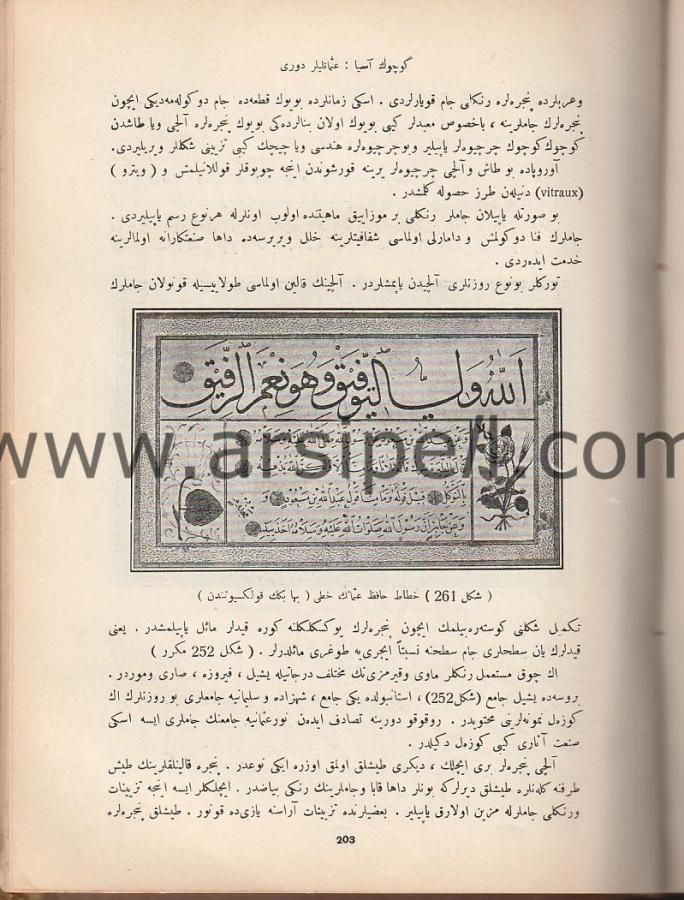 كوچوك آسيا : عثمانليلر دورى
وعربلرده پنجره‌لره رنكلى جام قويارلردى . اسكى زمانلرده بويوك قطعه‌ده جام دوكوله‌مه‌ديكى ايچون
پنجره‌لرك جاملرينه ، باخصوص معبدلر كبى بويوك اولان بنالرده‌كى بويوك پنجره‌لره آلچى ويا طاشدن
كوچوك كوچوك چرچيوه‌لر ياپيلير وبوچرچيوه‌لره هندسى ويا چيچك كبى تزيينى شكللر ويريليردى.
آوروپاده بو طاش وآلچى چرچيوه‌لر يرينه قورشوندن اينجه چوبوقلر قوللانيلمش و ( ويترو )
(vitraux) دنيلەن طرز حصوله كلمشدر .
بو صورتله ياپيلان جاملر رنكلى بر موزاييق ماهيتنده اولوب اونلرله هرنوع رسم ياپيليردى .
جاملرك فنا دوكولمش و دامارلى اولماسى شفافيتلرينه خلل ويريرسه‌ده داها صنعتكارانه اولمالرينه
خدمت ايده‌ردى .
توركلر بونوع روزنلرى آلچيدن ياپمشلردر . آلچينك قالين اولماسى طولاييسيله قونولان جاملرك
الله ولى التوفيق وهو نعم الرفيق
www.arsipel.com
( شكل 261 ) خطاط حافظ عثمانك خطى ( بها بكك قوللكسيونندن )
تكميل شكلنى كوستره‌بيلمك ايچون پنجره‌لرك يوكسكلكنه كوره قيدلر مائل ياپيلمشدر . يعنى
قيدلرك يان سطحلرى جام سطحنه نسبتاً ايچرى‌يه طوغرى مائلدرلر . ( شكل 252 مكرر )
اك چوق مستعمل رنكلر ماوى وقيرمزى‌نك مختلف درجاتيله يشيل ، فيروزه ، صارى وموردر .
بروسه‌ده يشيل جامع (شكل252) ، استانبولده يكى جامع ، شهزاده و سليمانيه جامعلرى بو روزنلرك اك
كوزەل نمونه‌لرينى محتويدر . روقوقو دورينه تصادف ايدەن نورعثمانيه جامعنك جاملرى ايسه اسكى
صنعت آثارى كبى كوزەل دكيلدر .
آلچى پنجره‌لر برى ايچلك ، ديكرى طيشلق اولمق اوزره ايكى نوعدر . پنجره قالينلقلرينك طيش
طرفنه كلەنلره طيشلق ديرلركه بونلر داها قابا وجاملرينك رنكى بياضدر . ايچلكلر ايسه اينجه تزيينات
ورنكلى جاملرله مزين اولارق ياپيلير . بعضيلرنده تزيينات آراسنه يازى‌ده قونور . طيشلق پنجره‌لره
203